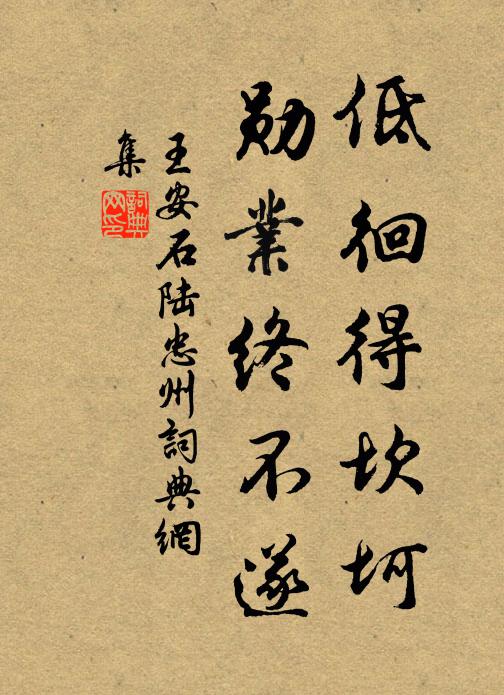 低徊得坎坷
勋業终不遂
王安石陆忠州詞典網
集
詞典
网印